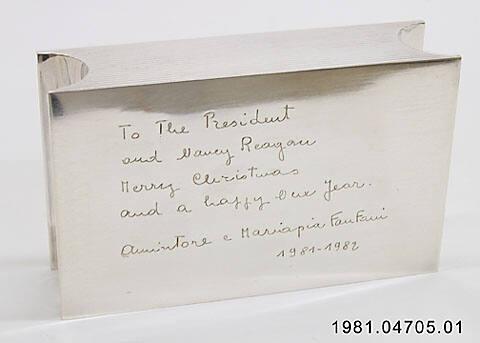 To The President
and Nancy Reagan
Merry Christmas
and a happy New Year.
Amintore e Mariapia Fanfani
1981-1982
1981.04705.01